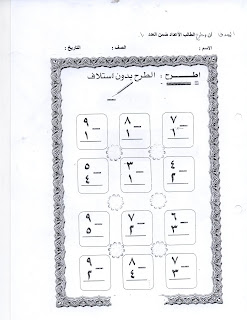 الهدف : أن يطرح الطالب الأعداد ضمن العدد
الاسم : الصف : التاريخ :
اطـــرح : الطرح بدون استلاف
٧ ٨ ٩
− − −
١ ١ ١
٤ ٣ ٥
− − −
٢ ١ ٤
٦ ٧ ٩
− − −
٣ ٢ ٥
٧ ٨ ٩
− − −
٣ ٤ ٢